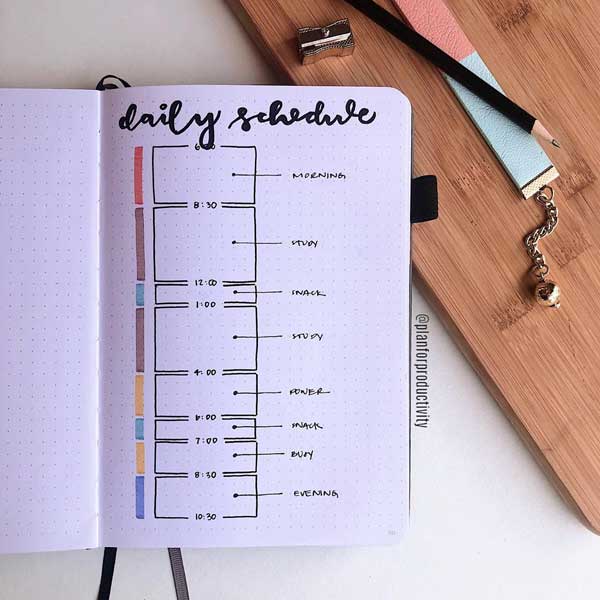 daily schedule
MORNING
8:30
STUDY
12:00
SNACK
1:00
STUDY
4:00
POWER
6:00
SNACK
7:00
BUSY
8:30
EVENING
10:30
@planforproductivity